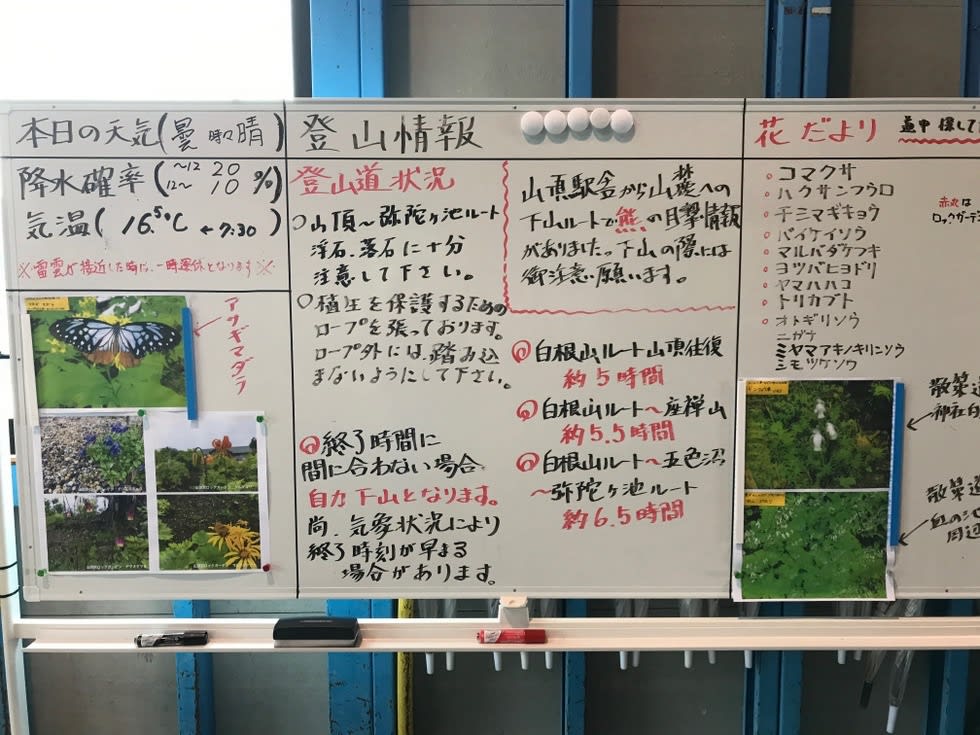 本日の天気(曇 時々 晴)
降水確率(~12 20 12~ 10 %)
気温(16.5℃ ←7:30)
※雷雲が接近した時は、一時運休となります※
アサギマダラ
登山情報
登山道状況
○山頂~弥陀ヶ池ルート
浮石、落石に十分
注意して下さい。
○植生を保護するための
ロープを張っております。
ロープ外には、踏み込
まないようにして下さい。
終了時間に
間に合わない場合
自力下山となります。
尚、気象状況により
終了時刻が早まる
場合があります。
山頂駅舎から山麓への
下山ルートで熊の目撃情報
がありました。下山の際には
御注意願います。
白根山ルート山頂往復
約5時間
白根山ルート~座禅山
約5.5時間
白根山ルート~五色沼
~弥陀ヶ池ルート
約6.5時間
花だより 途中探して
赤丸は
ロックガーデ
○コマクサ
○ハクサンフウロ
○チシマギキョウ
○バイケイソウ
○マルバダケブキ
○ヨツバヒヨドリ
○ヤマハハコ
○トリカブト
○オトギリソウ
ニガナ
ミヤマアキノキリンソウ
シモツケソウ
散策道
神社白
散策道
血の池
周辺